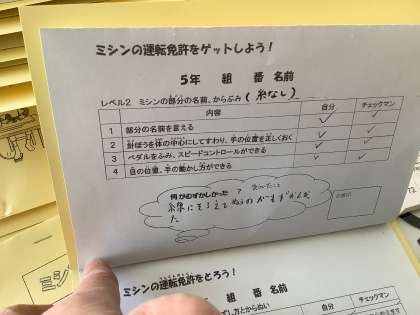 ミシンの運転免許をゲットしよう！
5年　組　番 名前
レベル2　ミシンの部分の名前、からぶみ（糸なし）
内容　自分　チェックマン
1　部分の名前を言える　✓　✓
2　針ぼうを体の中心にしてすわり、手の位置を正しくおく　✓　✓
3　ペダルをふみ、スピードコントロールができる　✓　✓
4　目の位置、手の動かし方ができる
何がむずかしかった？
線にそろえてぬうのがむずかしかっ
た
ミシンの運転免許をとろう！
組　番 名前
自分　チェック
ミシ